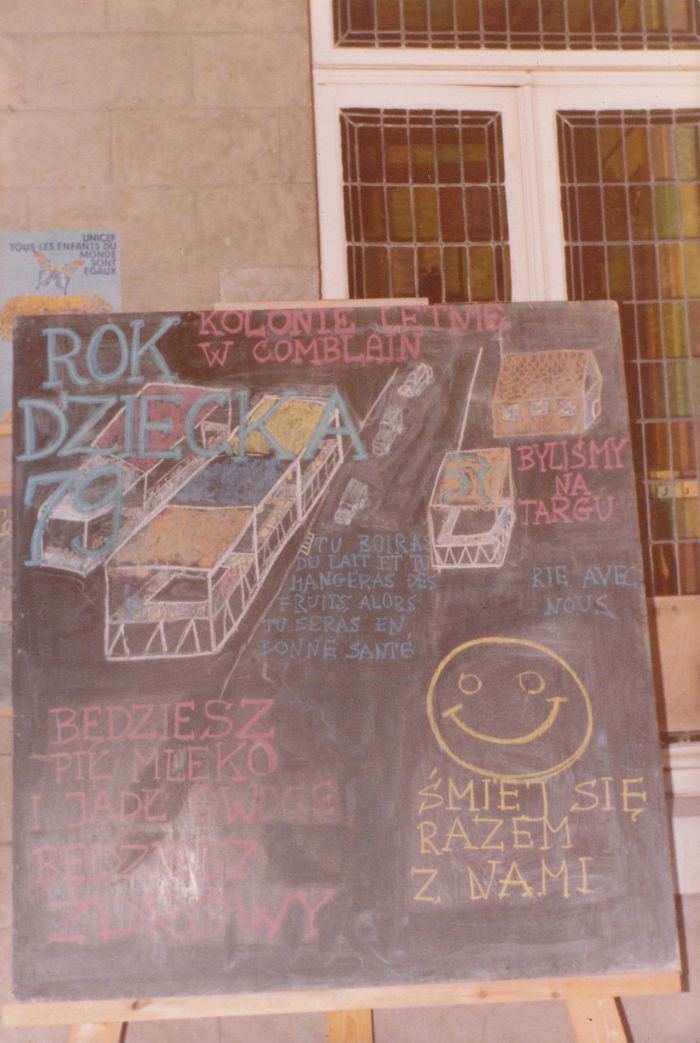 UNICEF
TOUS LES ENFANTS DU
MONDE
SONT
EGAUX
ROK
DZIECKA
79
KOLONIE LETNIE
W COMBLAIN
BYLIŚMY
NA
TARGU
TU BOIRAS
DU LAIT ET TU
MANGERAS DES
FRUITS ALORS
TU SERAS EN
BONNE SANTÉ
RIE AVEC
NOUS
BĘDZIESZ
PIŁ MLEKO
I JADŁ OWOCE
BĘDZIESZ
ZDROWY
ŚMIEJ SIĘ
RAZEM
Z NAMI